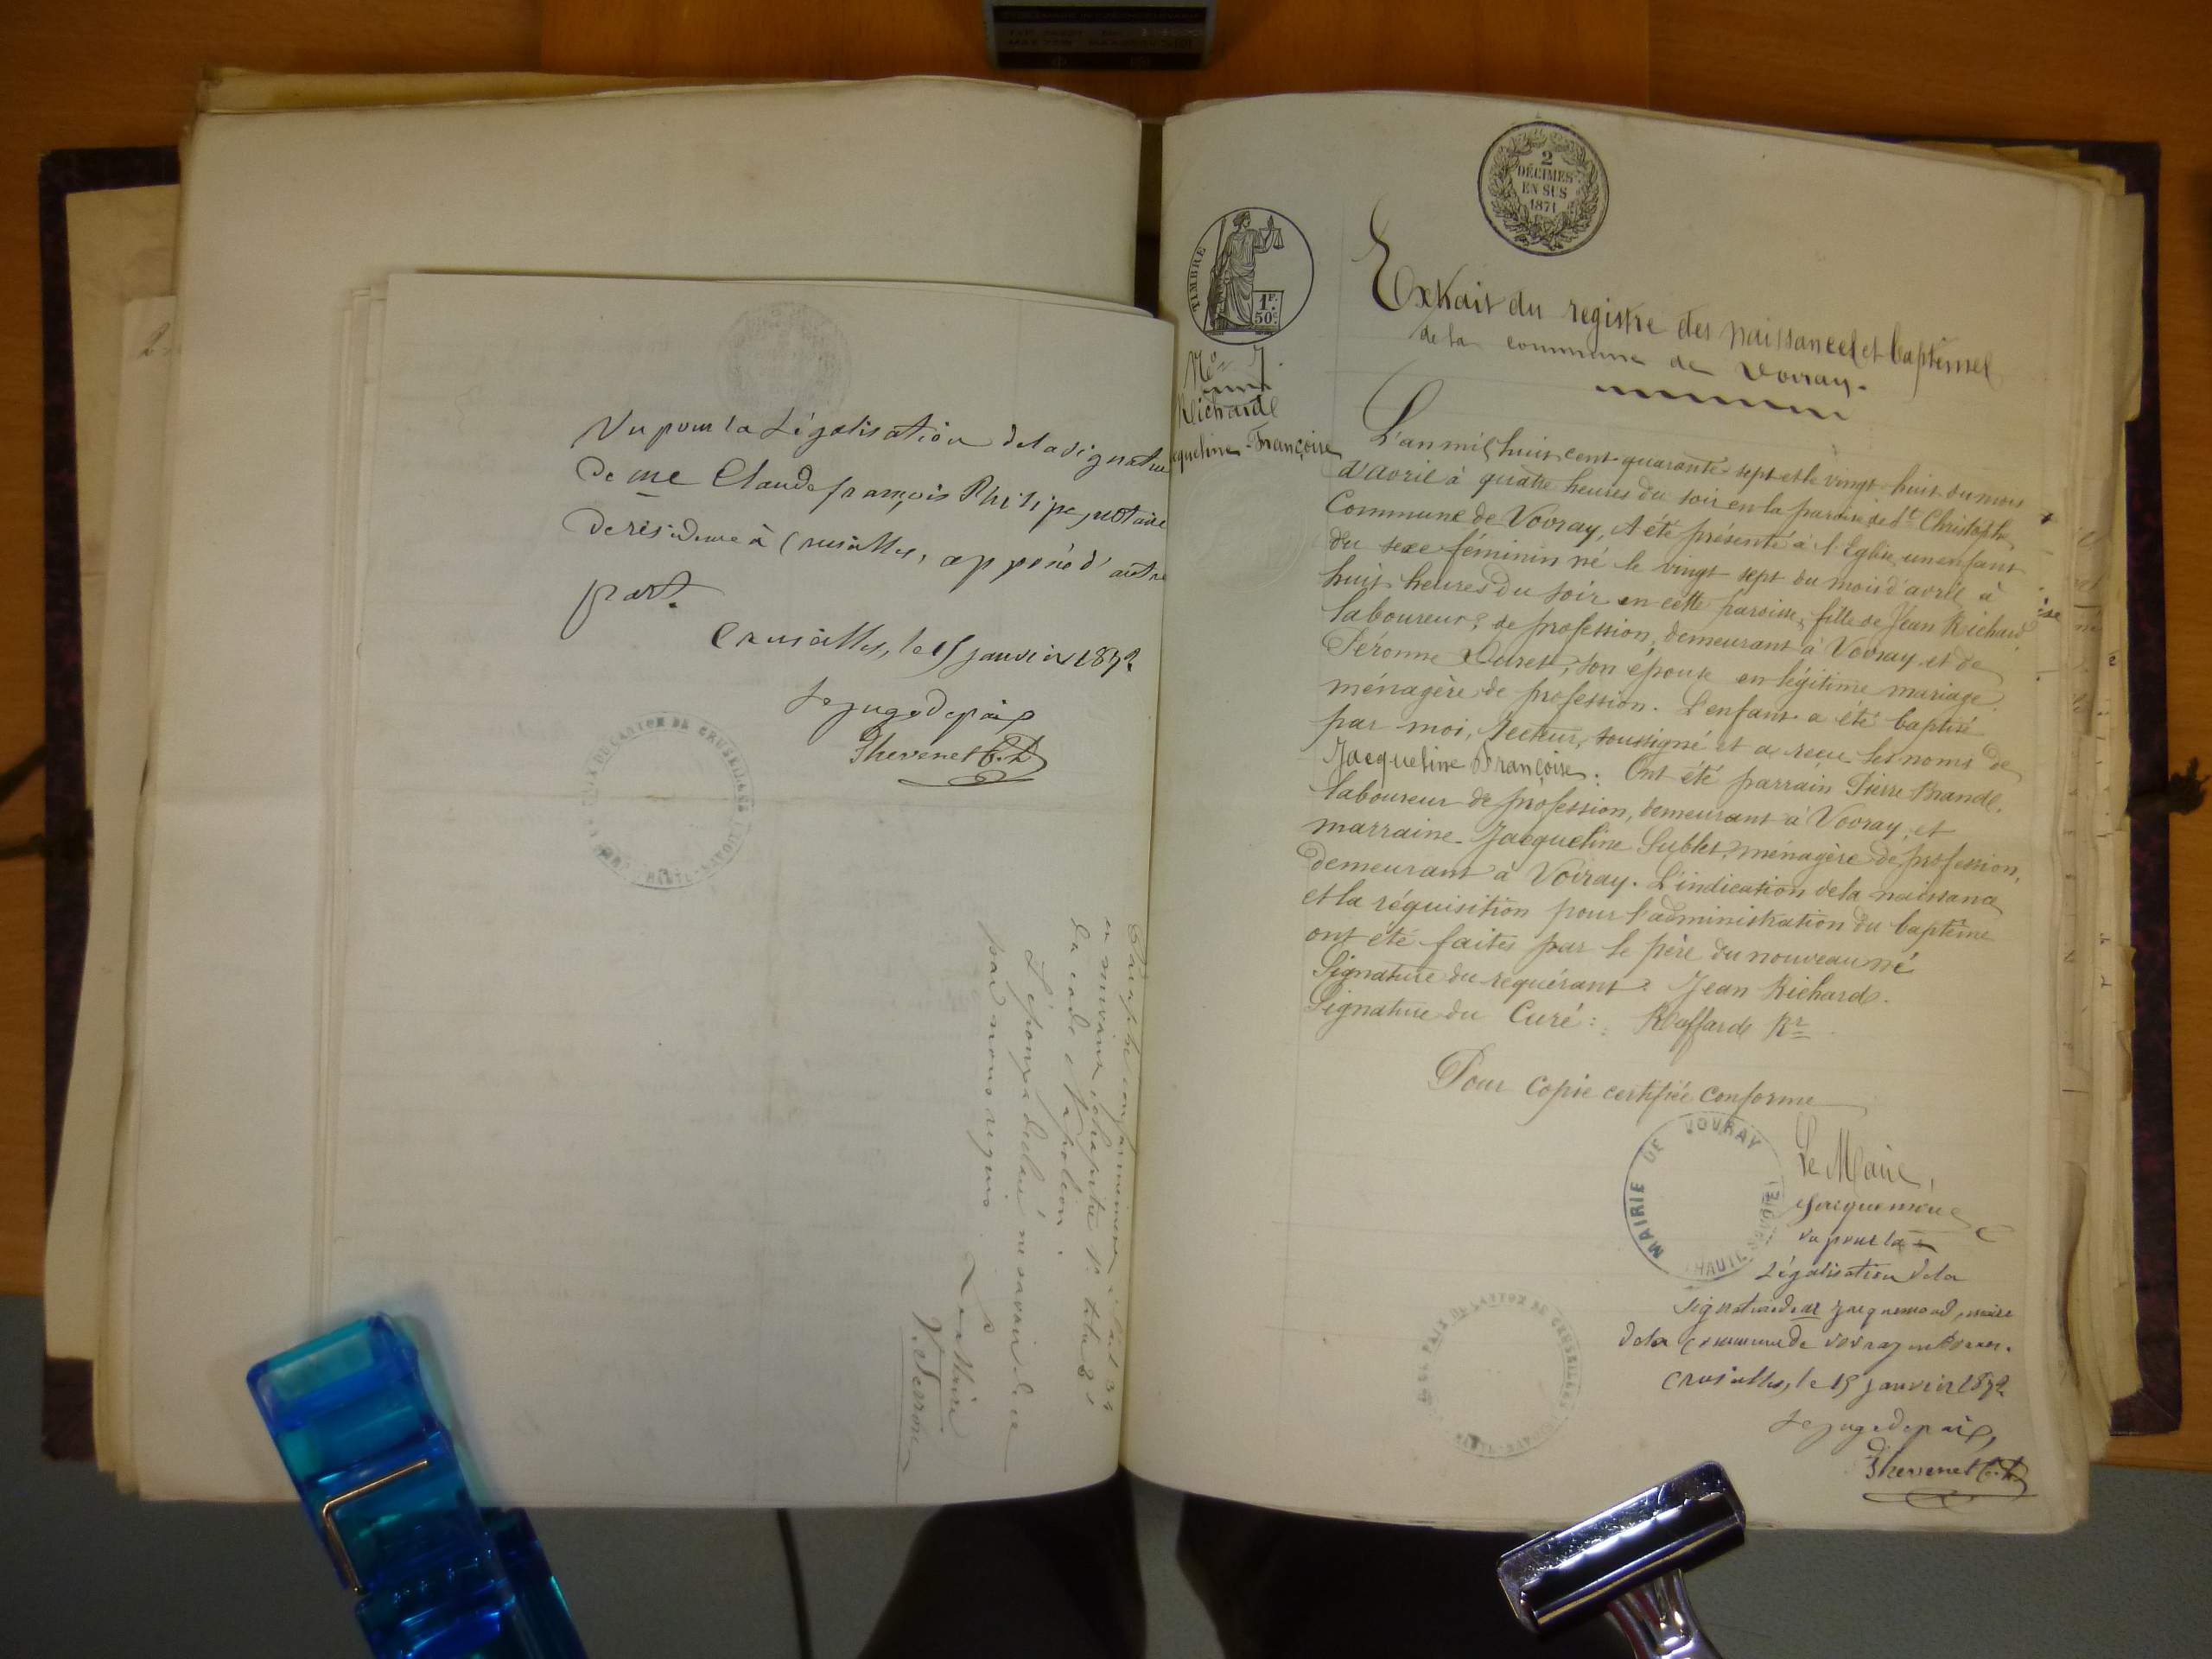 Vu pour la Légalisation de la signature
de me Claude françois Philipe, notaire
de résidence à Cruseilles, apposé d'autre
part.
Cruseilles, le 15 janvier 1872
Le juge de paix
Thevenet
Paraphé conformément à l'art 34
en suivant chapitre 1er titre 2
du code Napoléon.
L'épouse a déclaré ne savoir de ce
par nous requis.
Le Maire
2
DÉCIMES
EN SUS
1871
TIMBRE
1F.
50c.
No 7.
Richard
Jacqueline-Françoise
Extrait du registre des naissances et baptêmes
de la commune de Vovray.
L'an mil huit cent quarante-sept et le vingt-huit du mois
d'avril à quatre heures du soir en la paroisse de St Christophe,
Commune de Vovray, A été présenté à l'Eglise, un enfant
du sexe féminin né le vingt sept du mois d'avril à
huit heures du soir en cette paroisse, fille de Jean Richard
laboureur, de profession, demeurant à Vovray et de
Péronne Duret, son épouse en légitime mariage
ménagère de profession. L'enfant a été baptisé
par moi, recteur, soussigné et a reçu les noms de
Jacqueline Françoise. Ont été parrain Pierre Brand,
laboureur de profession, demeurant à Vovray, et
marraine Jacqueline Sublet, ménagère de profession,
demeurant à Vovray. L'indication de la naissance
et la réquisition pour l'administration du baptême
ont été faites par le père du nouveau né
Signature du requérant: Jean Richard.
Signature du Curé: Roffard Rr
Pour copie certifiée conforme
MAIRIE DE VOVRAY
HAUTE SAVOIE
Le Maire,
Jacquemoud
Vu pour la
Légalisation de la
signature de M Jacquemoud, maire
de la commune de Vovray en Bornes.
Cruseilles, le 15 janvier 1872
Le juge de paix,
Thevenet